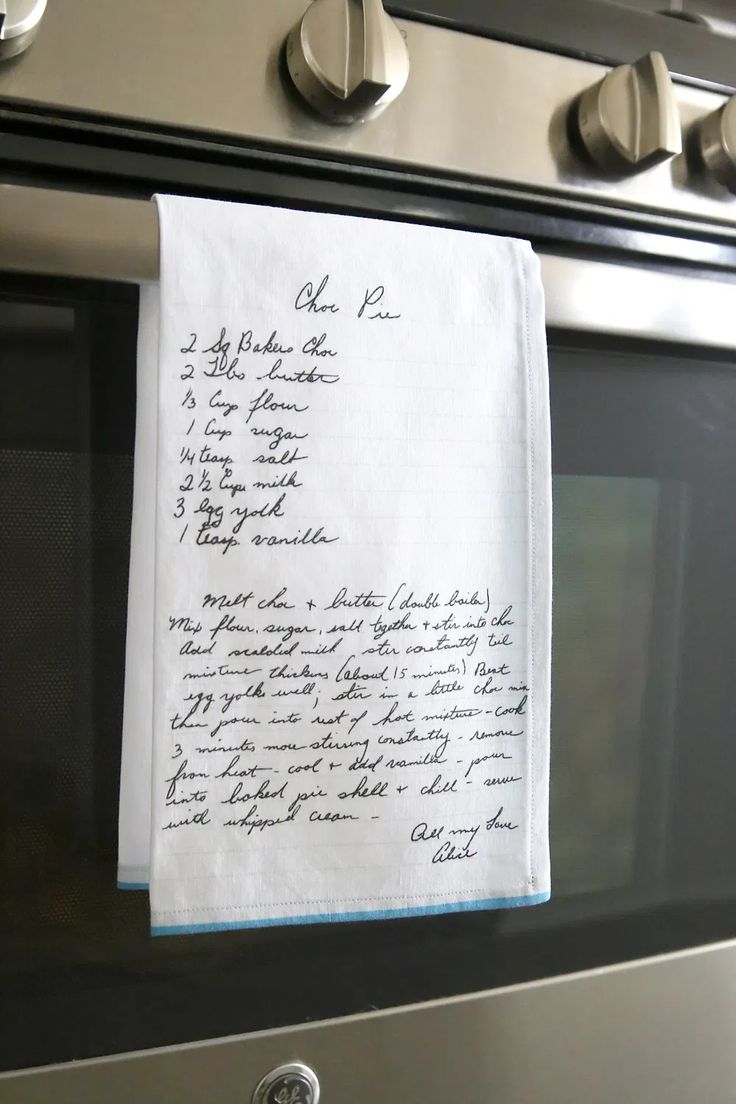 Choc Pie
2 Sq Bakers Choc
2 Tbs butter
1/3 Cup flour
1 Cup sugar
1/4 teasp salt
2 1/2 Cups milk
3 egg yolk
1 teasp vanilla
Melt choc + butter (double boiler)
Mix flour, sugar, salt together + stir into choc
Add scalded milk, stir constantly til
mixture thickens (about 15 minutes) Beat
egg yolks well; stir in a little choc mix
then pour into rest of hot mixture - cook
3 minutes more stirring constantly - remove
from heat - cool + add vanilla - pour
into baked pie shell + chill - serve
with whipped cream -
All my Love
Alice
GE